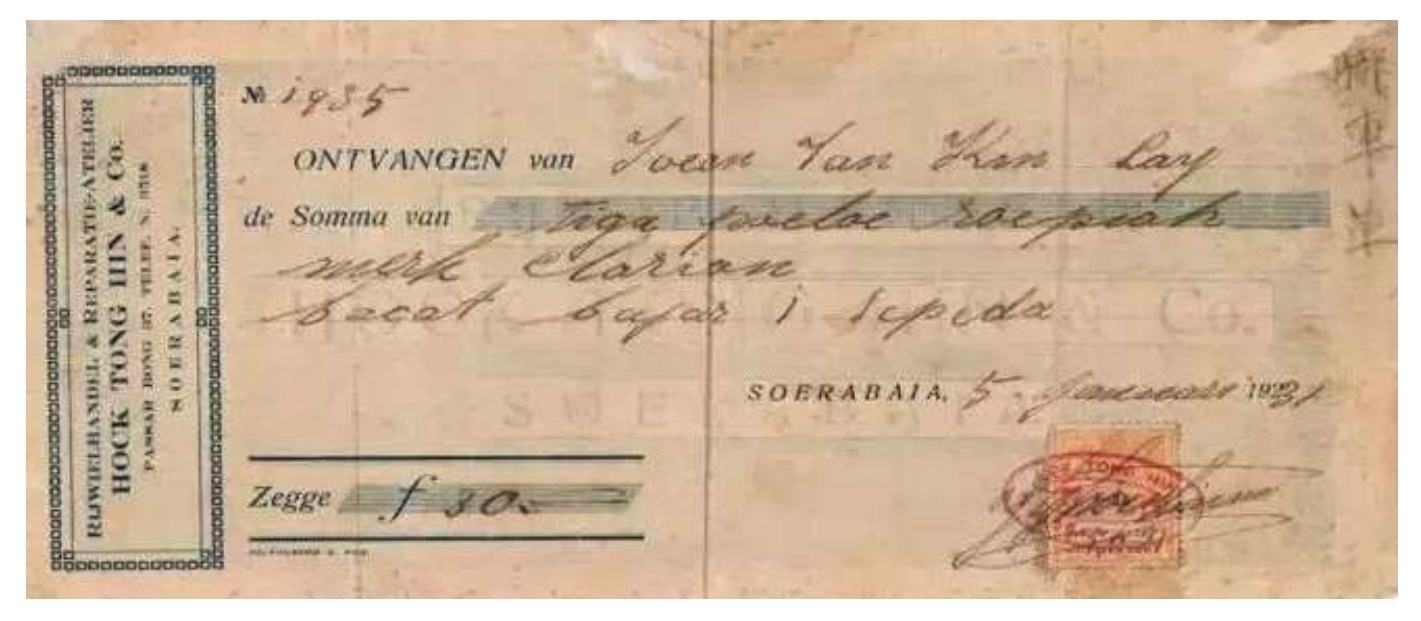 RIJWIELHANDEL & REPARATIE-ATELIER
HOCK TONG HIN & Co.
PASSAR BONG 37. TELEF. N. 3718
SOERABAIA.
№ 1935
ONTVANGEN van Toean Tan Kin Lay
de Somma van Tiga poeloe roepiah
merk Clarion
boeat bajar 1 sepeda
SOERABAIA, 5 Januari 1931
Zegge f 30.-